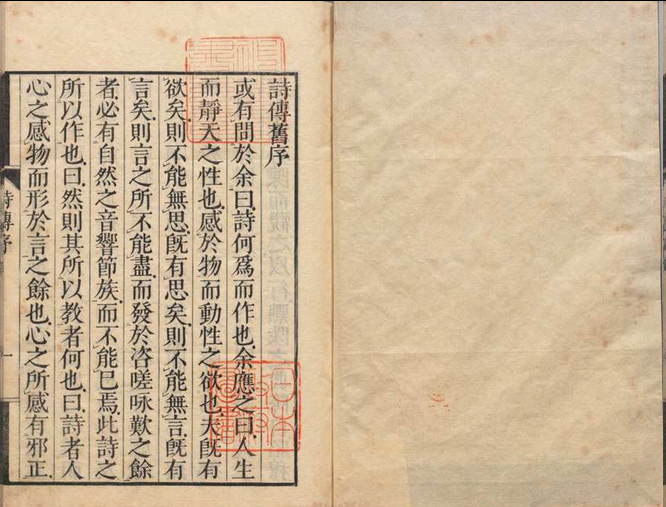 詩傳舊序
或有問於余曰詩何爲而作也余應之曰人生
而靜天之性也感於物而動性之欲也夫旣有
欲矣則不能無思旣有思矣則不能無言旣有
言矣則言之所不能盡而發於咨嗟咏歎之餘
者必有自然之音響節族而不能已焉此詩之
所以作也曰然則其所以教者何也曰詩者人
心之感物而形於言之餘也心之所感有邪正
詩傳序
一